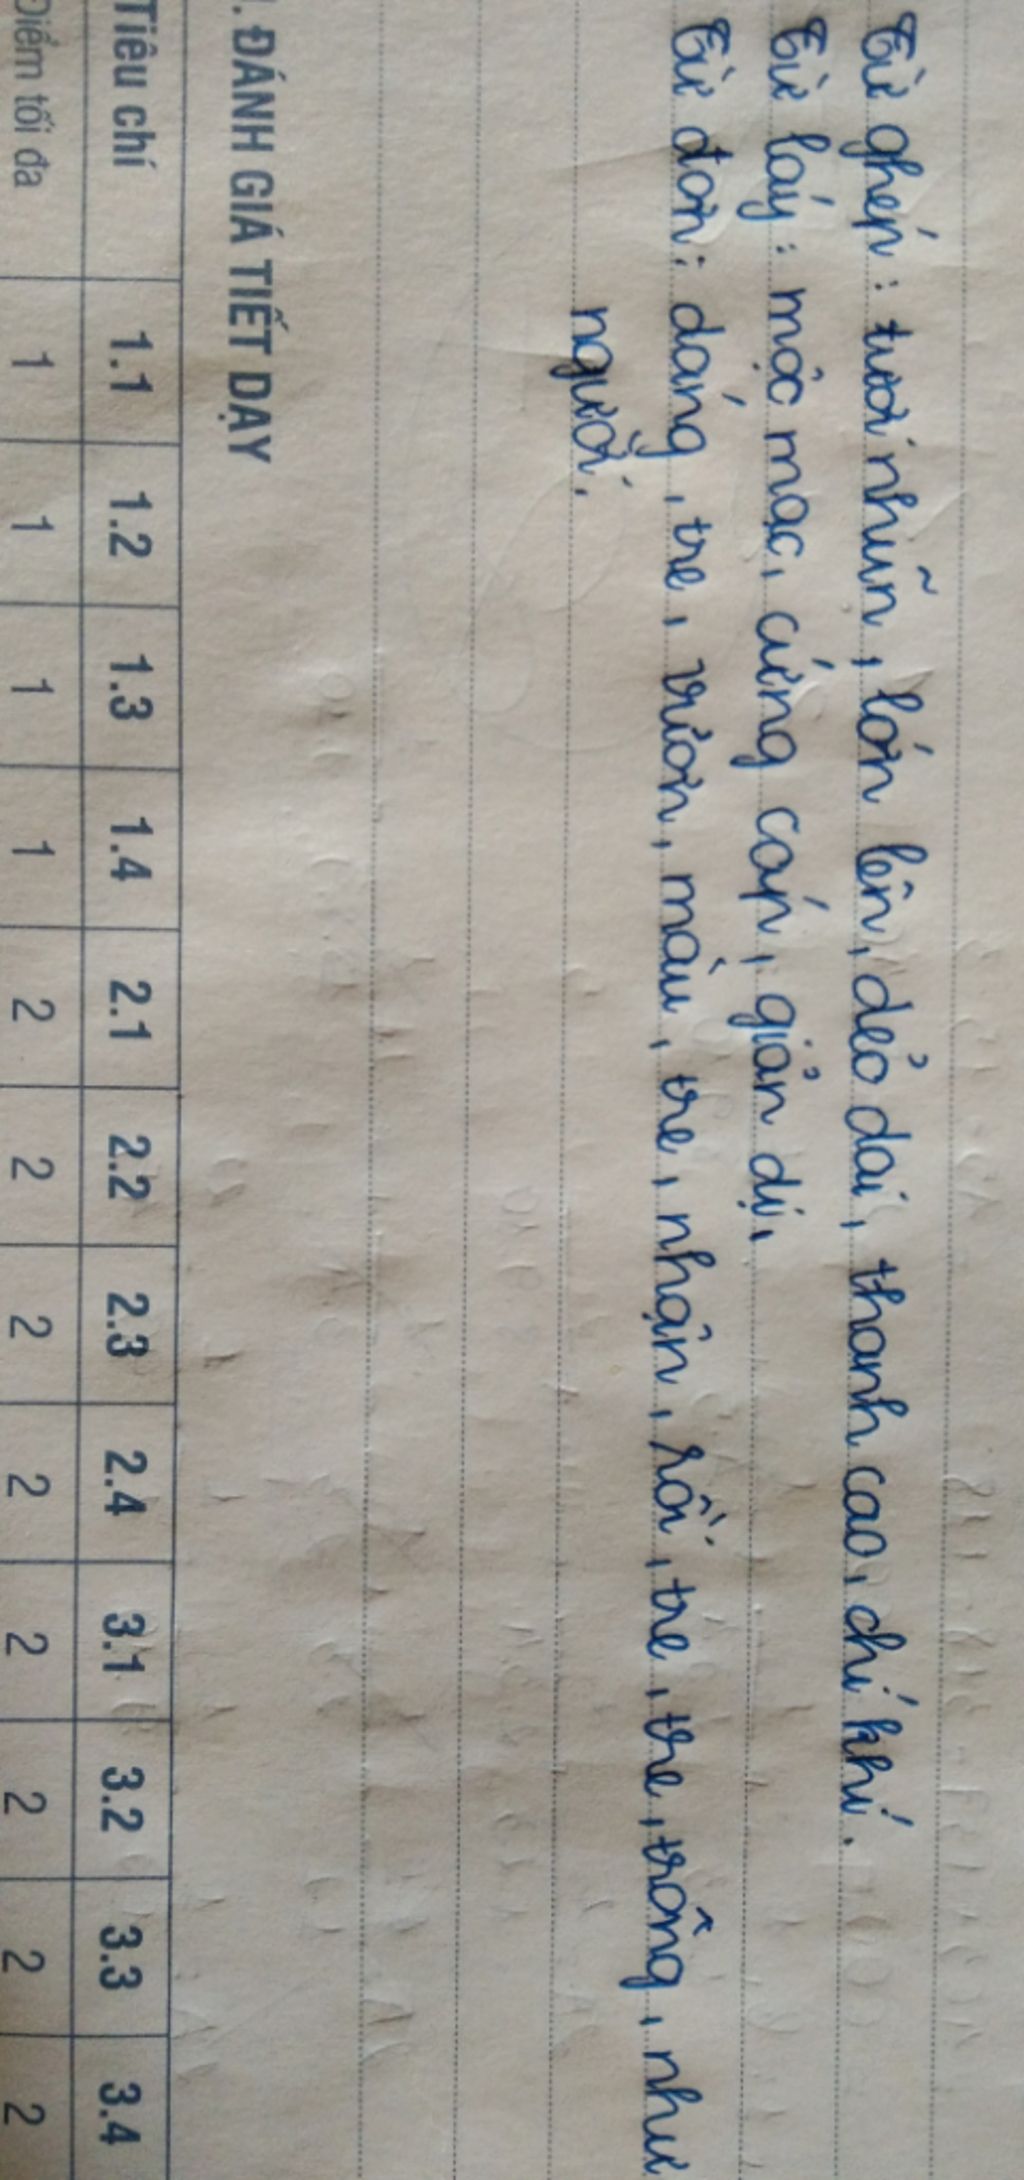 Từ ghép: tươi nhũn, lớn lên, dẻo dai, thanh cao, chí khí.
Từ láy: mộc mạc, cứng cáp, giản dị,
Từ đơn: dáng, tre, vươn, màu, tre, nhận, rồi, tre, tre, trông, như
người.
. ĐÁNH GIÁ TIẾT DẠY
Tiêu chí 1.1 1.2 1.3 1.4 2.1 2.2 2.3 2.4 3.1 3.2 3.3 3.4
Điểm tối đa 1 1 1 1 2 2 2 2 2 2 2 2